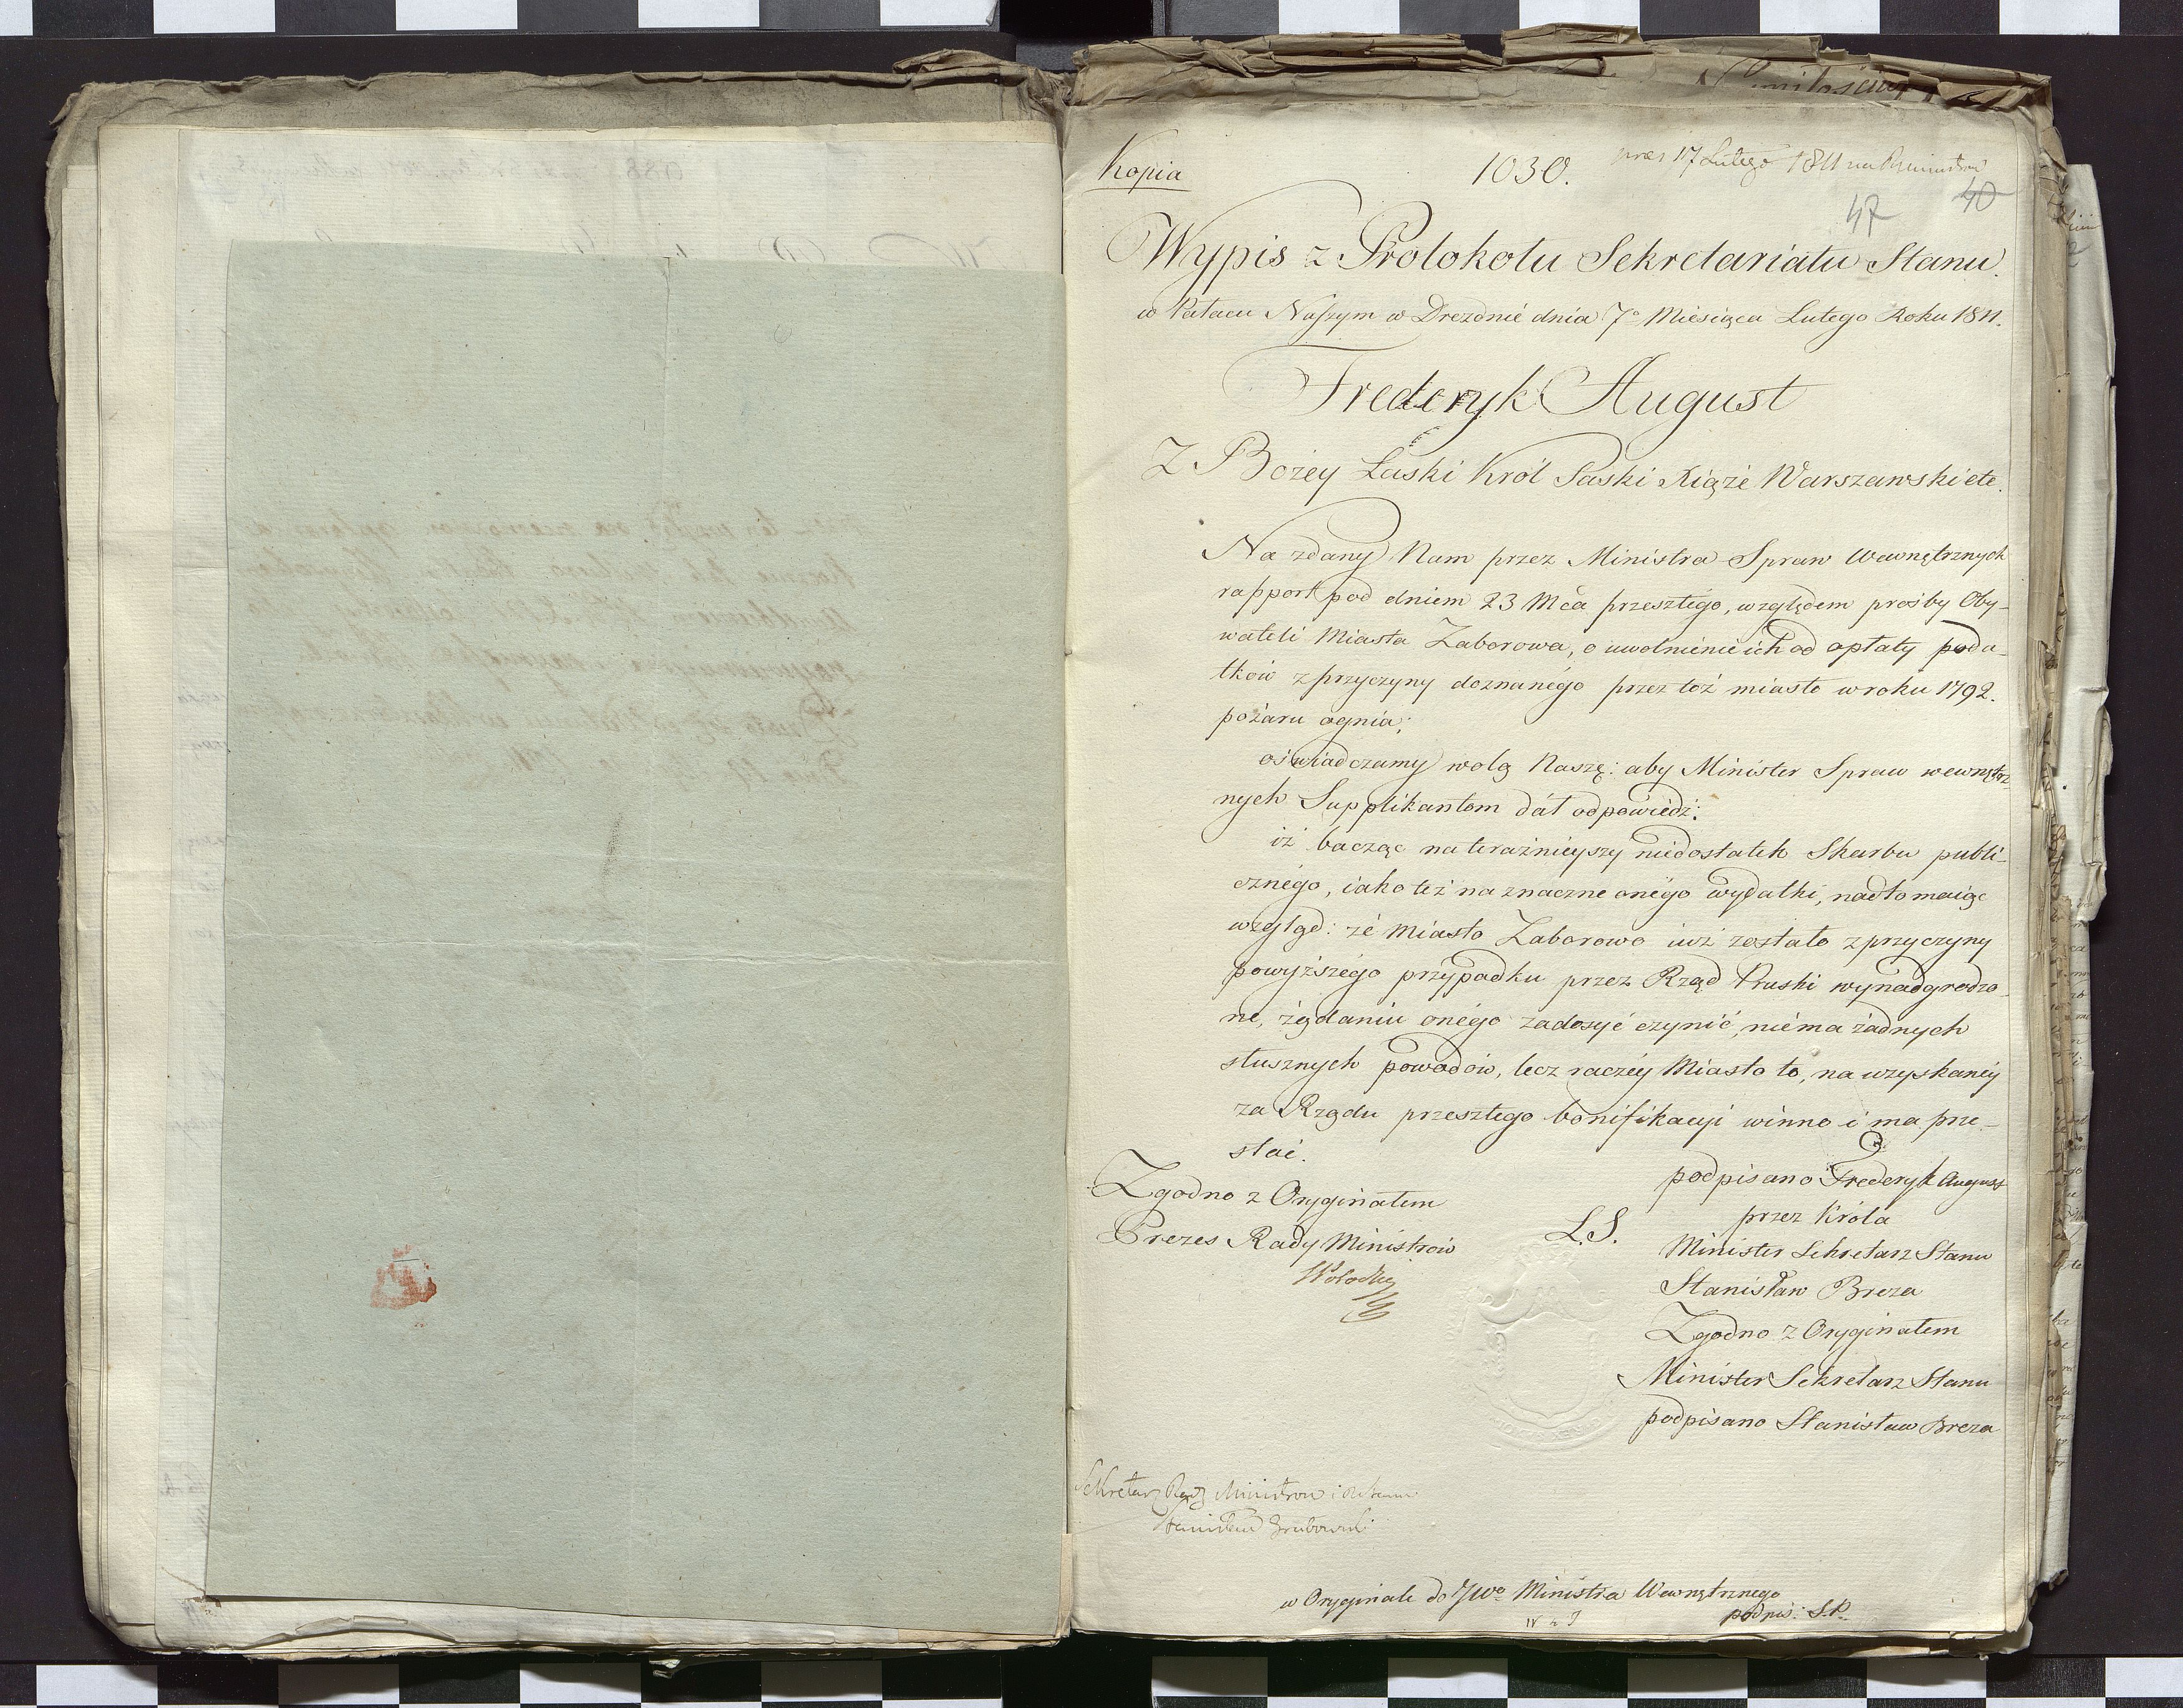 Kopia
1030.
17 Lutego 1811
47
40
Wypis z Protokołu Sekretariatu Stanu.
w Pałacu Naszym w Dreźnie dnia 7º Miesiąca Lutego Roku 1811.
Frederyk August
Z Bożey Łaski Król Saski Xiąże Warszawski etc.
Na zdany Nam przez Ministra Spraw Wewnętrznych
rapport pod dniem 23 Mca przeszłego, względem prośby Oby-
wateli Miasta Zaborowa, o uwolnienie ich od opłaty poda-
tków z przyczyny doznanego przez toż miasto w roku 1792.
pożaru ognia;
oświadczamy wolą Naszę: aby Minister Spraw wewnętrz-
nych Supplikantom dał odpowiedź:
iż bacząc na teraźnieyszy niedostatek Skarbu publi-
cznego, iako też na znaczne onego wydatki, nadto maiąc
wzgląd: że miasto Zaborowo iuż zostało z przyczyny
powyższego przypadku przez Rząd Pruski wynadgrodzo-
ne, żądaniu onego zadosyć czynić, niema żadnych
słusznych powodów, lecz raczéy Miasto to, na uzyskanéy
za Rządu przeszłego bonifikacyi winno i ma prze-
stać.
podpisano Frederyk August
przez Króla
L.S.
Minister Sekretarz Stanu
Stanisław Breza
Zgodno z Oryginałem
Minister Sekretarz Stanu
podpisano Stanisław Breza
Zgodno z Oryginałem
Prezes Rady Ministrów
Sekretarz Rady Ministrow
Stanisław Grabowski
w Oryginale do JWo Ministra Wewnętrznego
podpis: S.P.